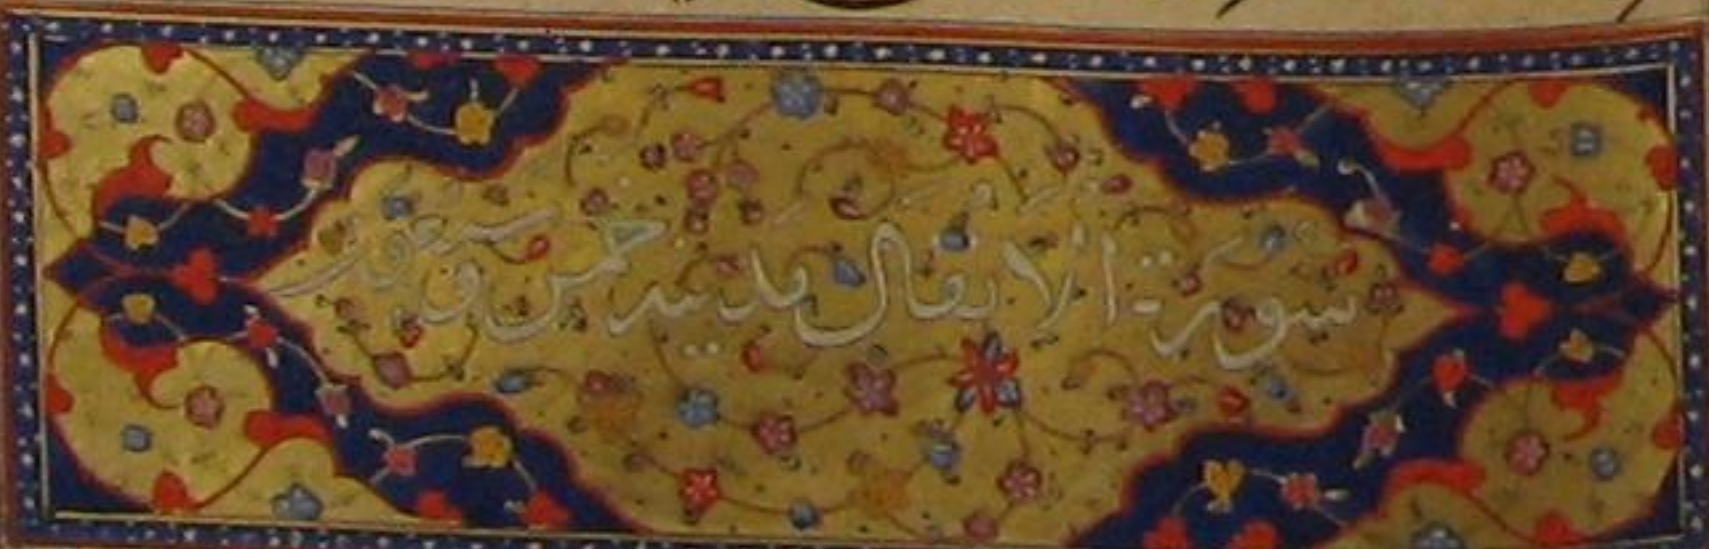 سورة الانفال مدنية خمس و سبعون